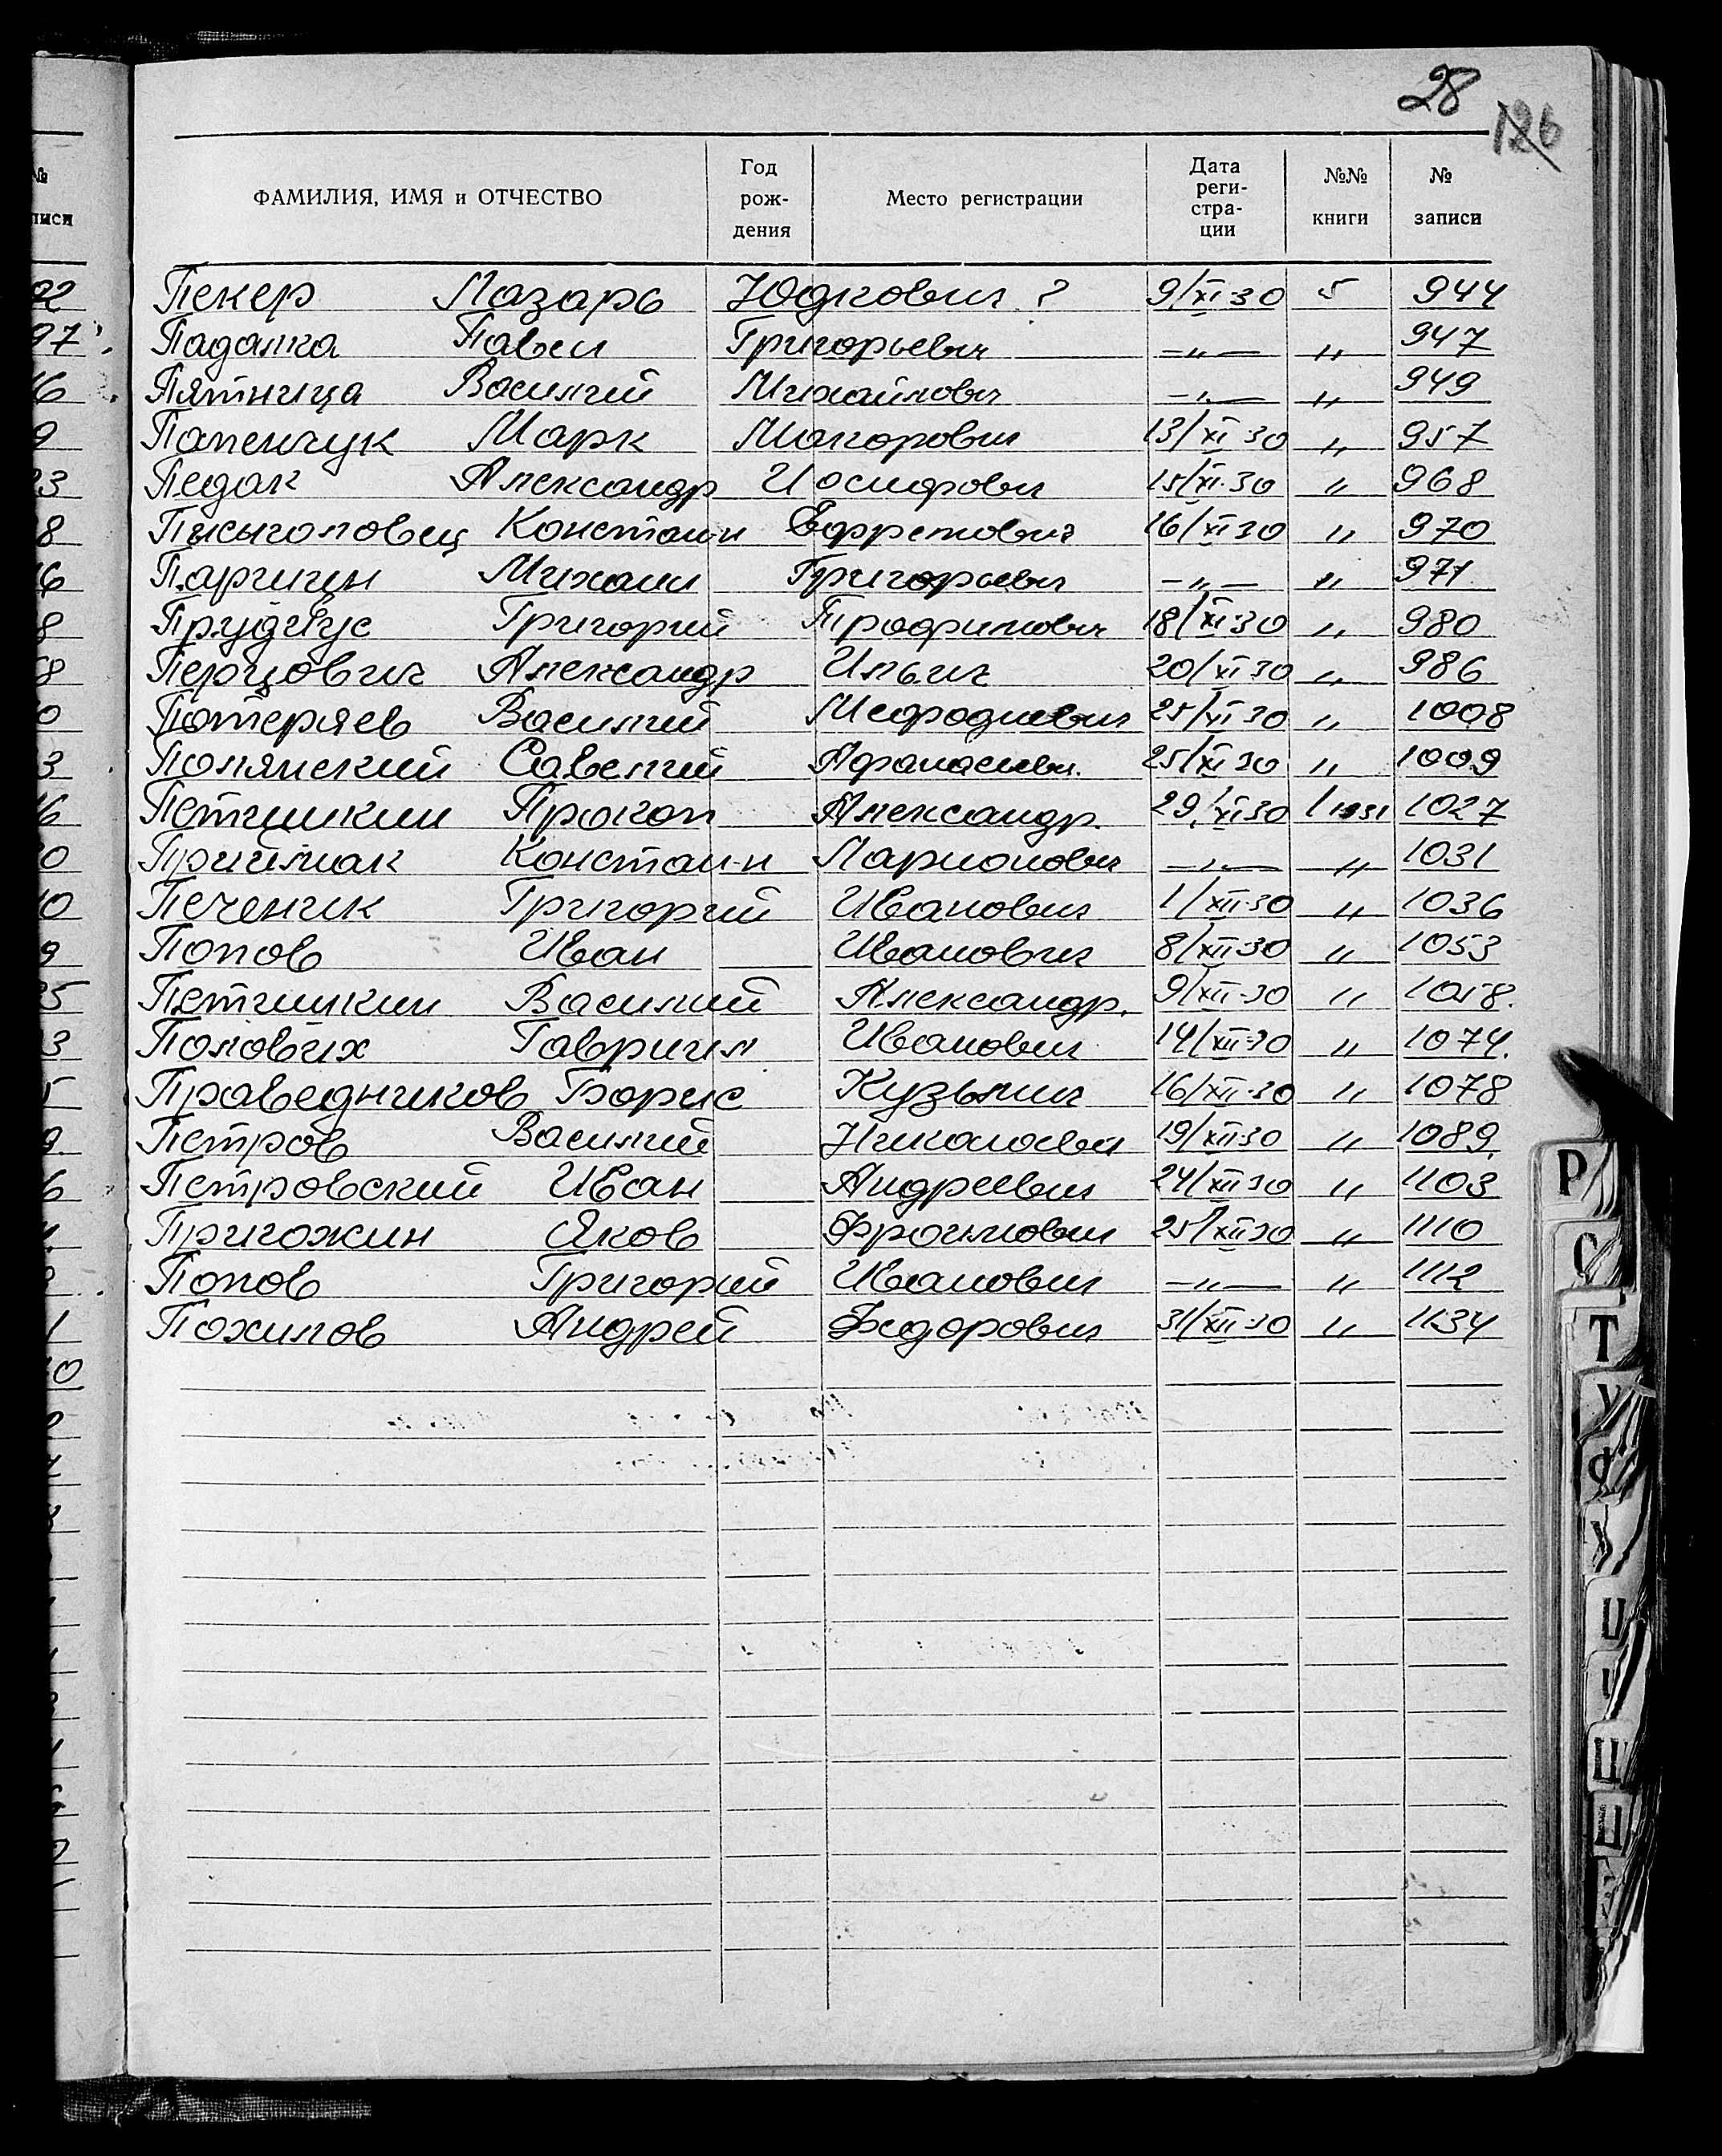 28
126
ФАМИЛИЯ, ИМЯ и ОТЧЕСТВО Год рождения Место регистрации Дата регистрации №№ книги № записи
Пекер Лазарь Юдкович ? 9/XI-30 5 944
Падалка Павел Григорьевич —„— „ 947
Пятница Василий Михайлович —„— „ 949
Папенчук Марк Макарович 13/XI-30 „ 957
Педак Александр Иосифович 15/XI-30 „ 968
Писыголовец Констан-н 16/XI-30 „ 970
Паргицн Михаил Григорьевич —„— „ 971
Пруднус Григорий Трофимович 18/XI-30 „ 980
Перцович Александр Ильич 20/XI-30 „ 986
Потеряев Василий Мефодиевич 25/XI-30 „ 1008
Полянский Савелий Афанасьевич 25/XI-30 „ 1009
Петишкин Прокоп Александр. 29/XI-30 1 1931 1027
Приймак Констан-н Ларионович —„— „ 1031
Печеник Григорий Иванович 1/XII-30 „ 1036
Попов Иван Иванович 8/XII-30 „ 1053
Петишкин Василий Александр. 9/XII-30 „ 1058.
Половых Гавриил Иванович 14/XII-30 „ 1074.
Праведников Борис Кузьмич 16/XII-30 „ 1078
Петров Василий Николаевич 19/XII-30 „ 1089.
Петровский Иван Андреевич 24/XII-30 „ 1103
Пригожин Яков 25/XII-30 „ 1110
Попов Григорий Иванович —„— „ 1112
Похилов Андрей Федорович 31/XII-30 „ 1134
Р
С
Т
У
Ф
Х
Ц
Ш